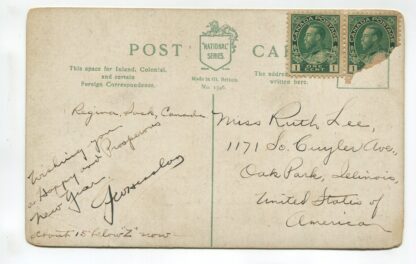 POST CARD
"NATIONAL"
SERIES.
Made in Gt. Britain
No. 1346.
This space for Inland, Colonial,
and certain
Foreign Correspondence.
The address
written here.
CANADA POSTAGE
1 CENT 1
CANADA POSTAGE
1
Regina, Sask, Canada
Wishing you
a Happy and Prosperous
New Year.
about 15 below "Z" now
Miss Ruth Lee,
1171 So. Cuyler Ave.,
Oak Park, Illinois,
United States of
America